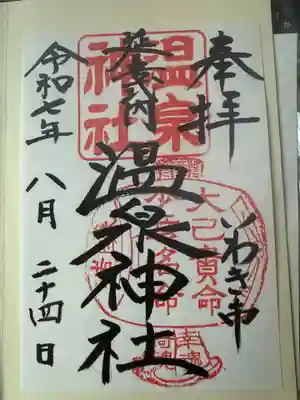 奉拝
いわき市
延喜式内
温泉神社
令和七年
八月二十四日
温泉神社
大己貴命
少彦名命